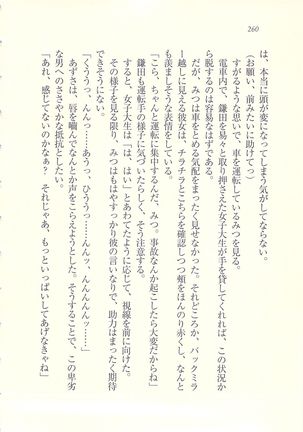 260
は、本当に頭が変になってしまう気がしてならない。
(お願い、前みたいに助けてっ)
すがるような思いで、車を運転しているみつを見る。
電車内で、鎌田を易々と取り押さえた女子大生が手を貸してくれれば、この状況か
ら脱するのは容易なはずである。
だが、みつは車をとめる気配をまったく見せなかった。それどころか、バックミラ
ー越しに見える彼女は、チラチラとこちらを確認しつつ頬をほんのり赤くし、なんと
も羨ましそうな表情をしている。
「こら、ちゃんと運転に集中するんだ、みつ。事故なんか起こしたら大変だからね」
鎌田も運転手の様子に気づいたらしく、そう注意する。
すると、女子大生は「は、はい」とあわてたように応じて、視線を前に向けた。
その様子を見る限り、みつはもはやすっかり彼の言いなりで、助力はまったく期待
できそうにない。
「くううっ、んんっ……あうっ、ひううっ……んんッ、んんんんッ……」
あずさは、唇を噛んでなんとか声をこらえようとした。そうすることで、この卑劣
な男へのささやかな抵抗としたい。
「あれ、感じてないのかなぁ? それじゃあ、もっといっぱいしてあげなきゃね」